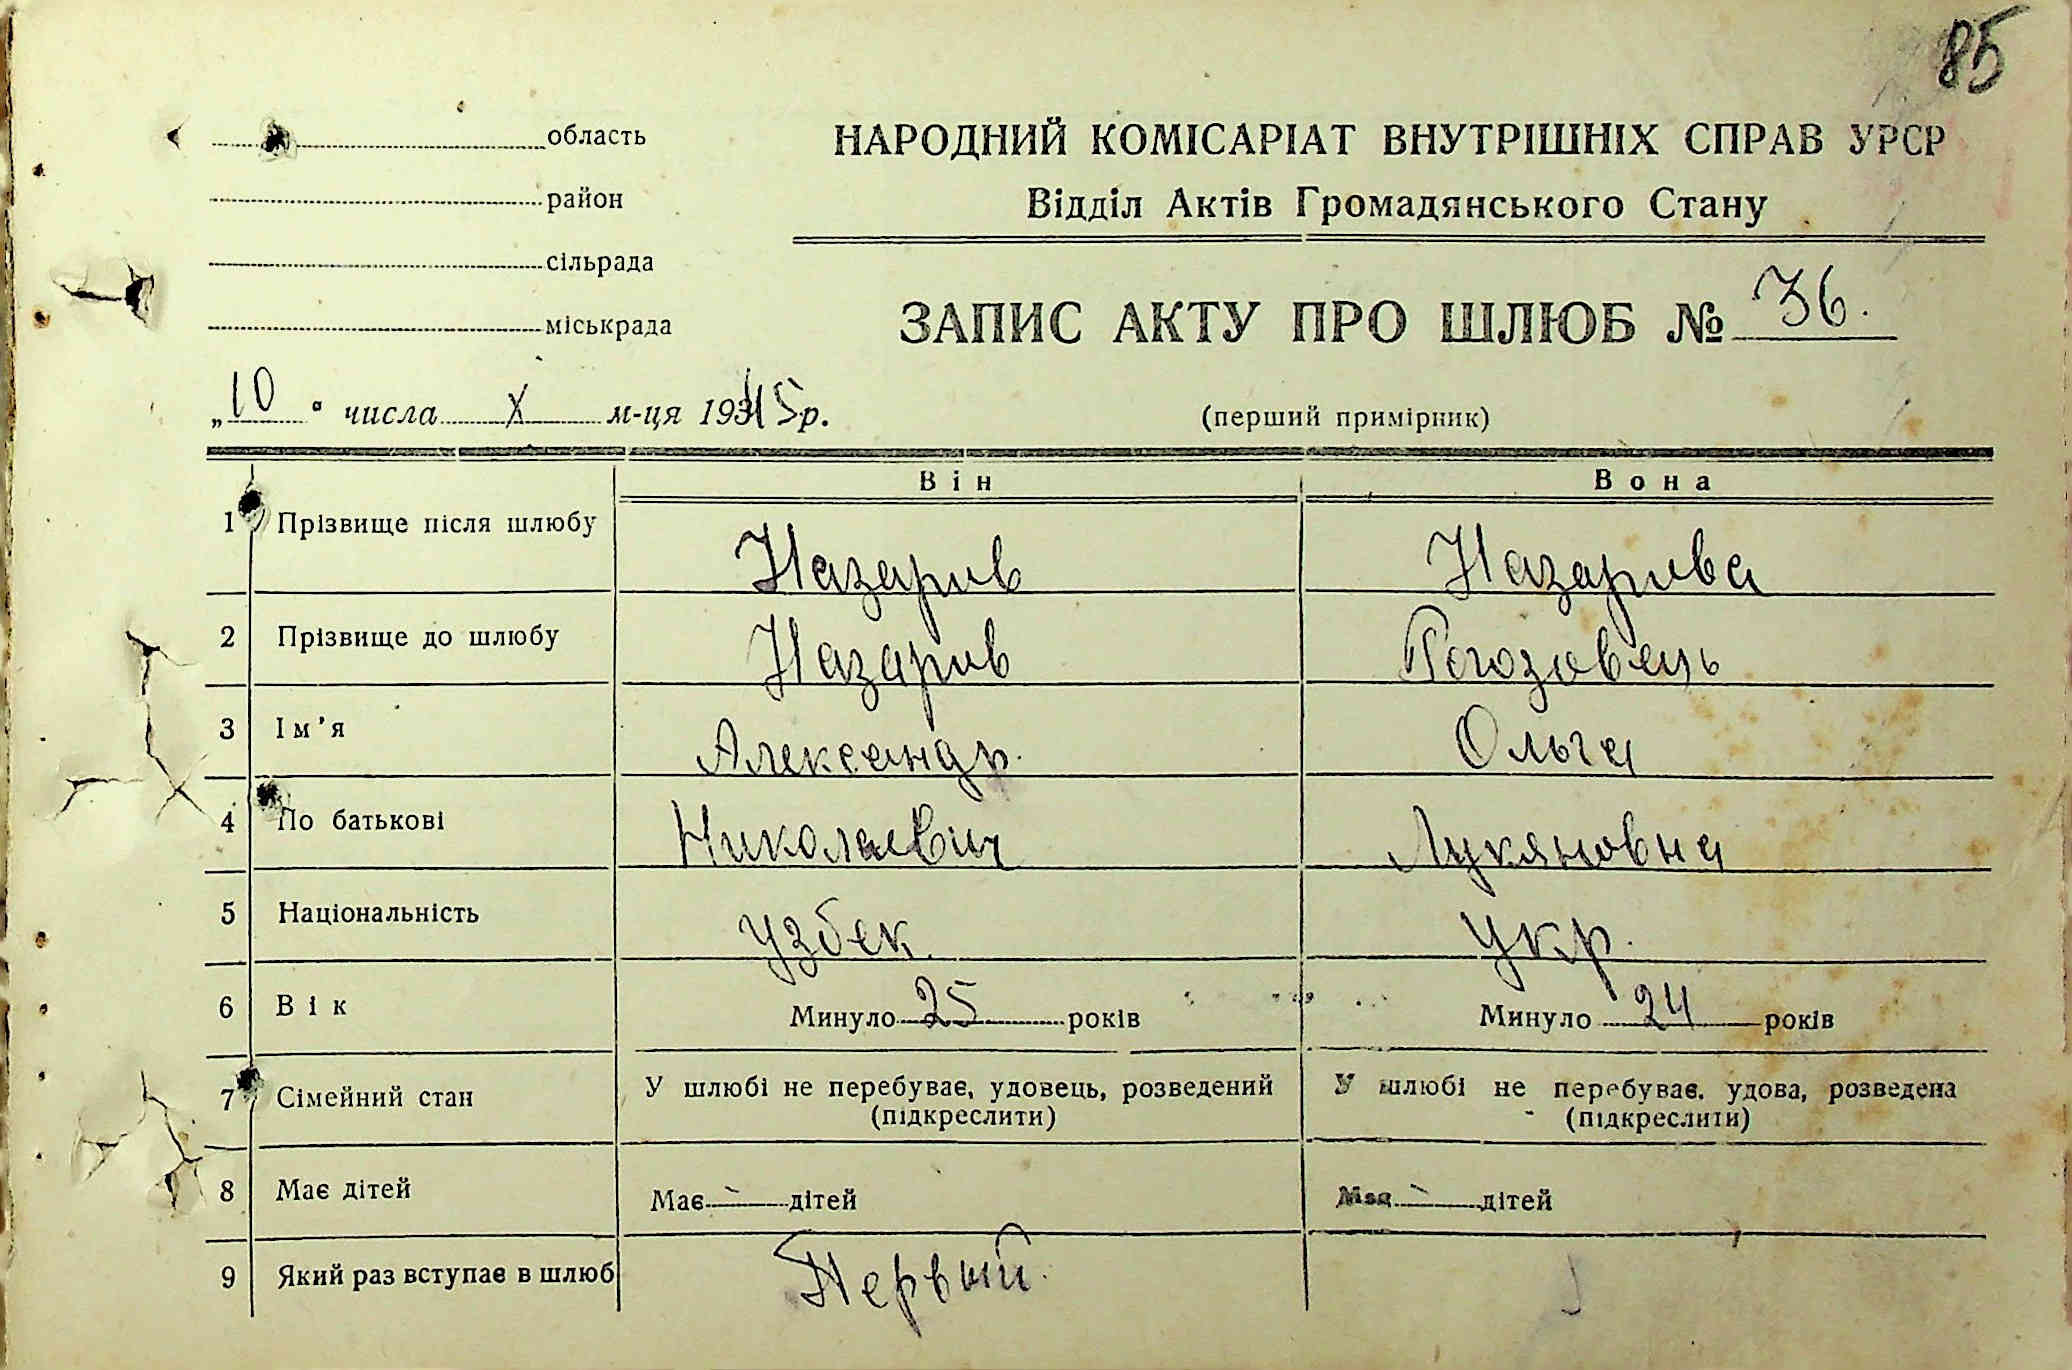 85
область
район
сільрада
міськрада
НАРОДНИЙ КОМІСАРІАТ ВНУТРІШНІХ СПРАВ УРСР
Відділ Актів Громадянського Стану
ЗАПИС АКТУ ПРО ШЛЮБ № 36.
„10" числа X м-ця 1945 р.
(перший примірник)
Він Вона
1 Прізвище після шлюбу Назаров Назарова
2 Прізвище до шлюбу Назаров Рогозовець
3 Ім'я Александр. Ольга
4 По батькові Николаевич Лукяновна
5 Національність узбек. укр.
6 Вік Минуло 25 років Минуло 24 років
7 Сімейний стан У шлюбі не перебуває, удовець, розведений У шлюбі не перебуває, удова, розведена
(підкреслити) (підкреслити)
8 Має дітей Має - дітей Має - дітей
9 Який раз вступає в шлюб Первый.